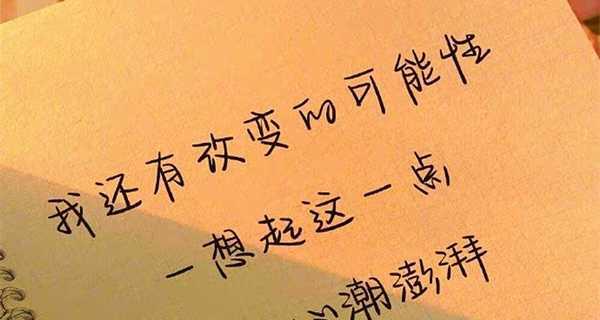 我还有改变的可能性
一想起这一点
潮澎湃